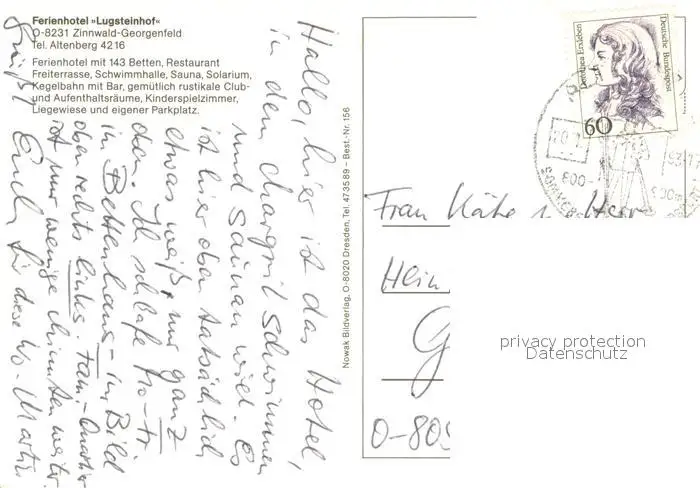 Ferienhotel »Lugsteinhof«
O-8231 Zinnwald-Georgenfeld
Tel. Altenberg 4216
Ferienhotel mit 143 Betten, Restaurant
Freiterrasse, Schwimmhalle, Sauna, Solarium,
Kegelbahn mit Bar, gemütlich rustikale Club-
und Aufenthaltsräume, Kinderspielzimmer,
Liegewiese und eigener Parkplatz.
Hallo, hier ist das Hotel,
in dem schwimmen
und Saunan wird. Es
ist hier oben tatsächlich
etwas weiß, nur ganz
Ich schlafe
im Bettenhaus - im Bild
oben rechts links.
ist nur wenige Minuten weiter
Grüße! Euch für diese Wo-
Nowak Bildverlag, O-8020 Dresden, Tel. 473589 – Best.-Nr. 156
Dorothea Erxleben
Deutsche Bundespost
60
Frau Käthe
Hein
G
O-809
privacy protection
Datenschutz